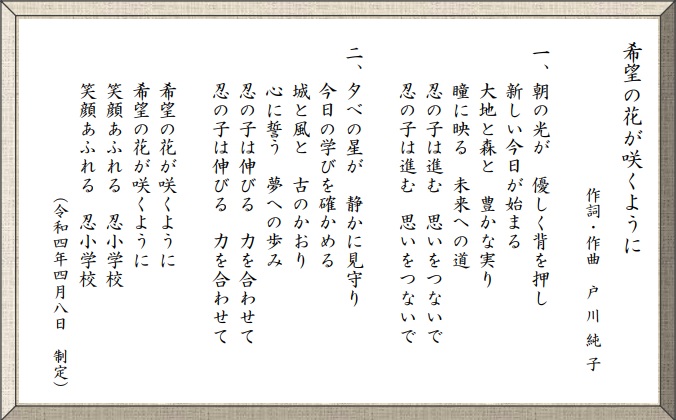 希望の花が咲くように
作詞・作曲　戸川純子
一、朝の光が　優しく背を押し
新しい今日が始まる
大地と森と　豊かな実り
瞳に映る　未来への道
忍の子は進む　思いをつないで
忍の子は進む　思いをつないで
二、夕べの星が　静かに見守り
今日の学びを確かめる
城と風と　古のかおり
心に誓う　夢への歩み
忍の子は伸びる　力を合わせて
忍の子は伸びる　力を合わせて
希望の花が咲くように
希望の花が咲くように
笑顔あふれる　忍小学校
笑顔あふれる　忍小学校
（令和四年四月八日　制定）